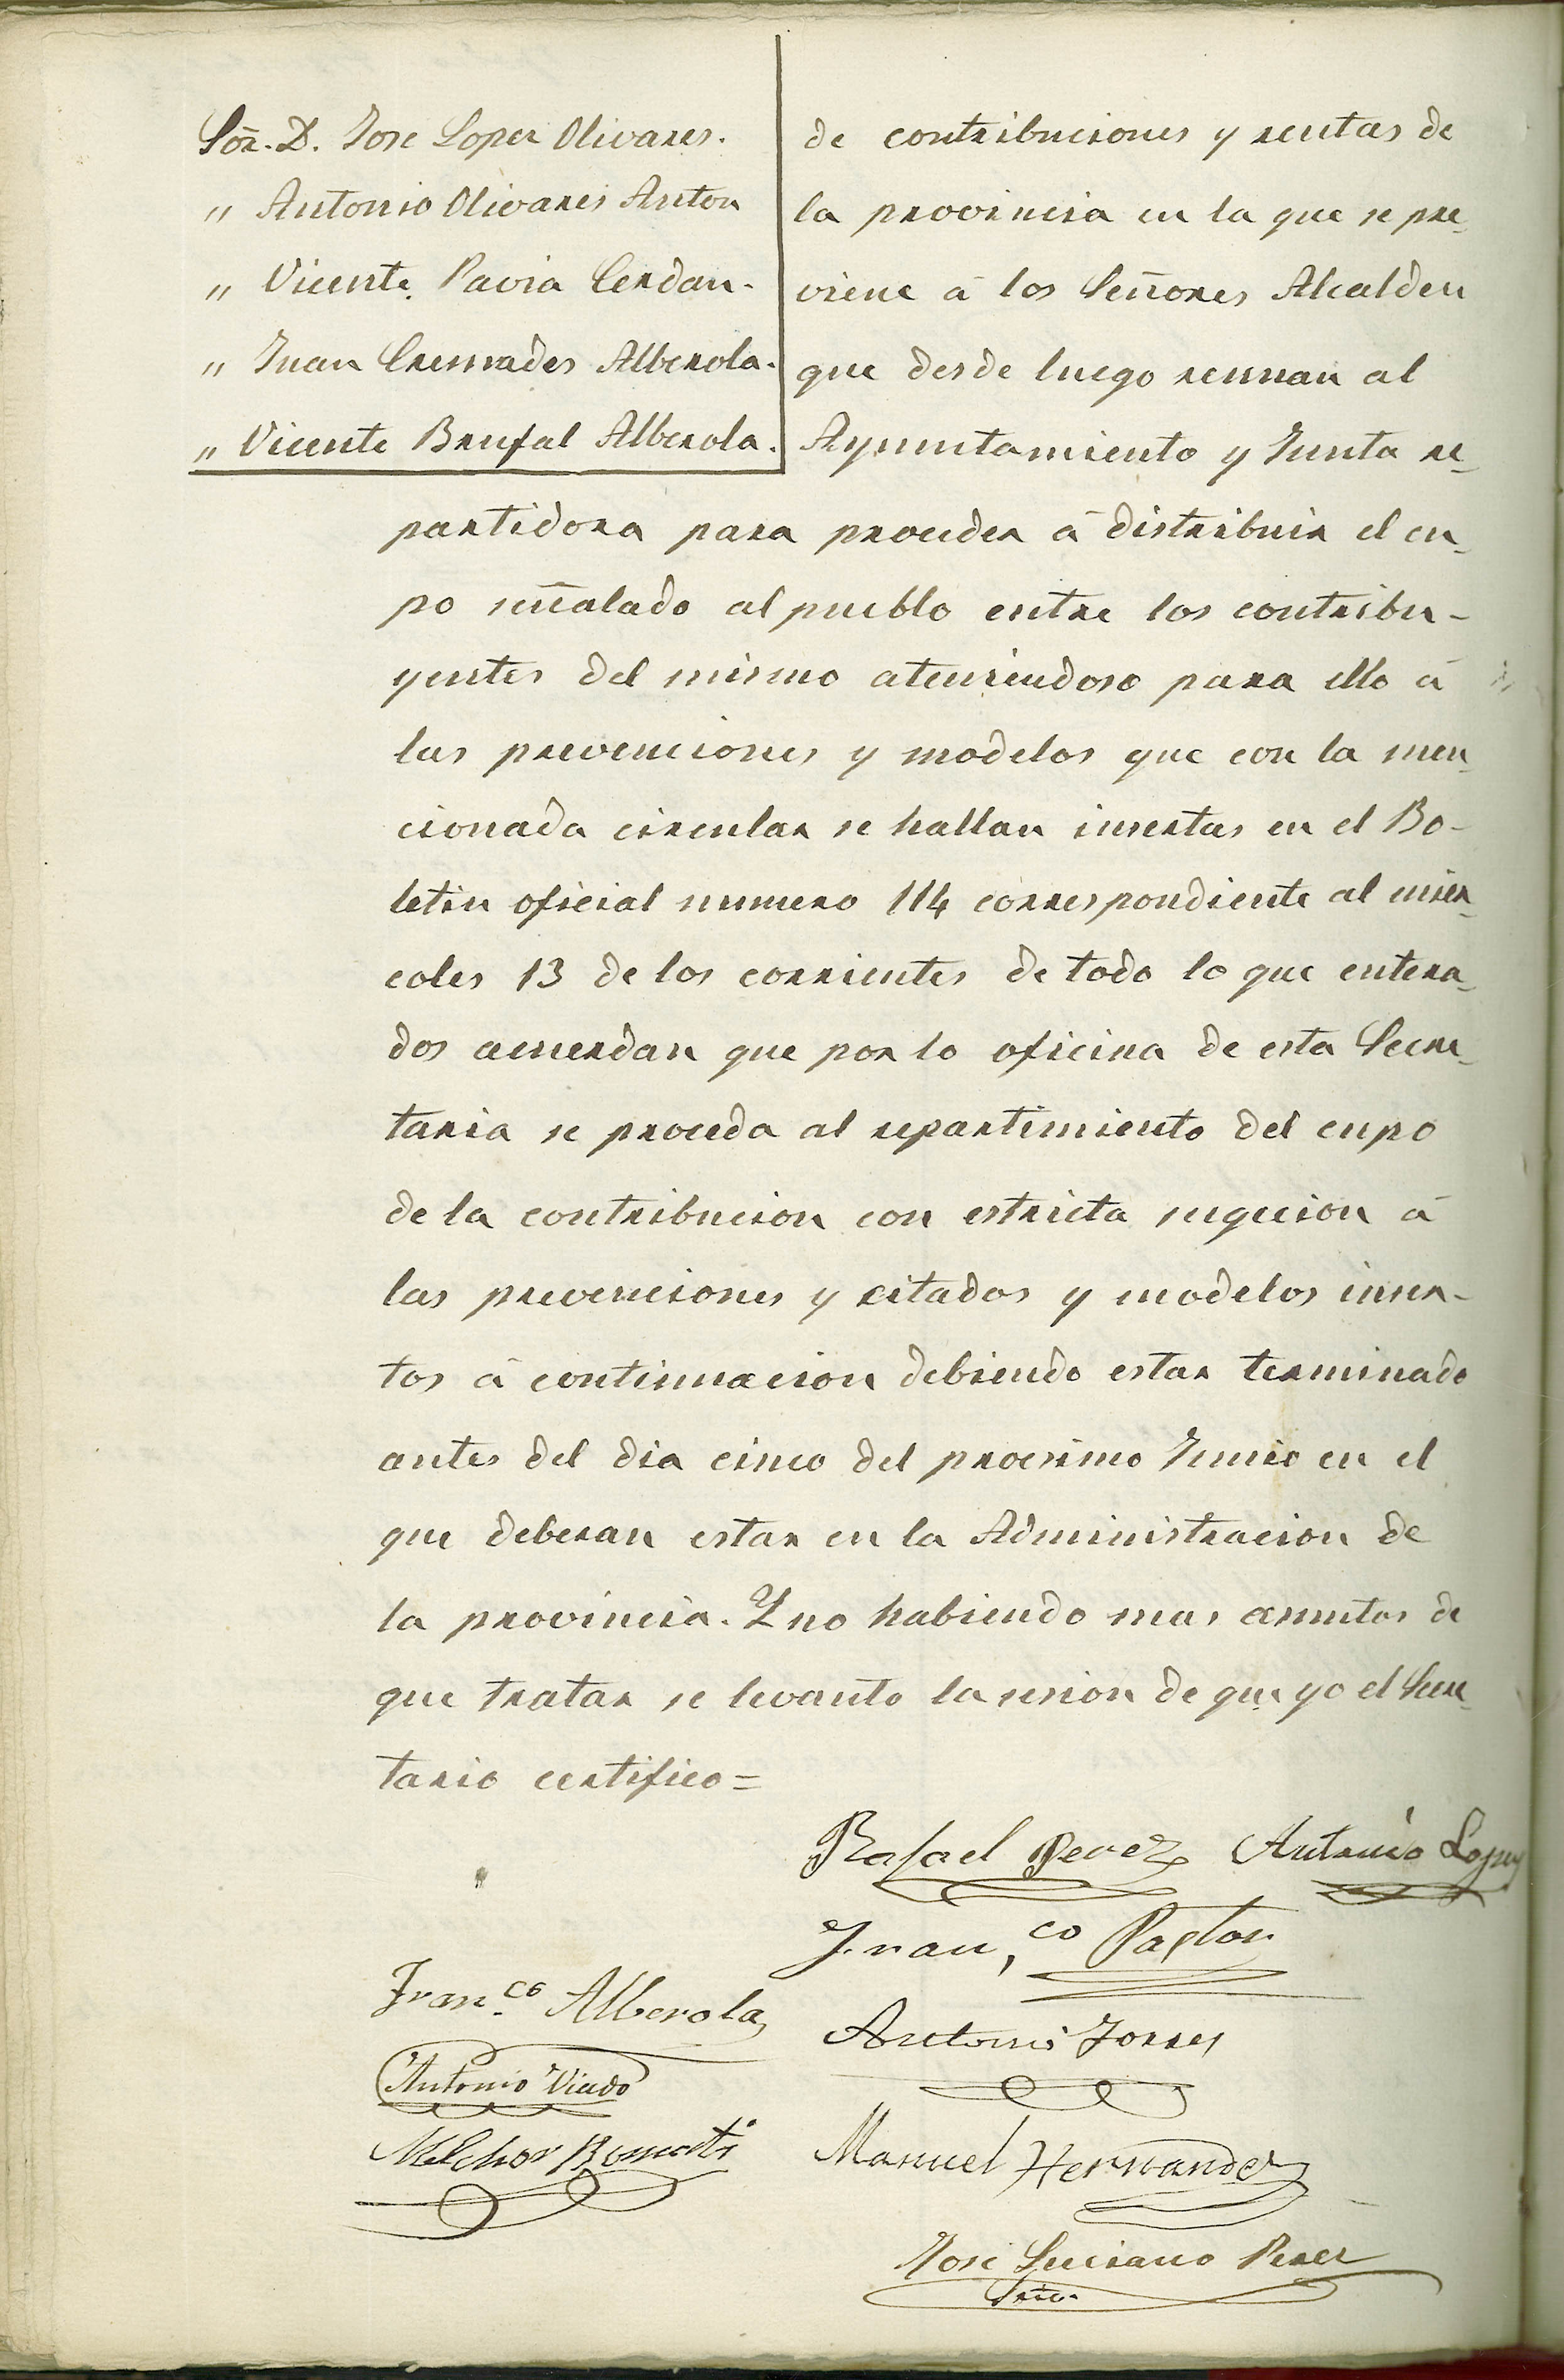 Sõr. D. Jose Lopez Olivares.
" Antonio Olivares Anton
" Vicente Pavia Cerdan.
" Juan Cremades Alberola.
" Vicente Brufal Alberola.
de contribuciones y rentas de
la provincia en la que se pre-
viene á los Señores Alcaldes
que desde luego reunan al
Ayuntamiento y Junta re-
partidora para proceder á distribuir el cu-
po señalado al pueblo entre los contribu-
yentes del mismo ateniendose para ello á
las prevenciones y modelos que con la men-
cionada circular se hallan insertas en el Bo-
letin oficial numero 114 correspondiente al mier-
coles 13 de los corrientes de todo lo que entera-
dos acuerdan que por lo oficina de esta Secre-
taria se proceda al repartimiento del cupo
de la contribucion con estricta sugecion á
las prevenciones y citados y modelos inser-
tos á continuacion debiendo estar terminado
antes del dia cinco del procsimo Junio en el
que deberan estar en la Administracion de
la provincia. Y no habiendo mas asuntos de
que tratar se levanto la sesion de que yo el Secre-
tario certifico=
Rafael Perez Antonio Lopez
Fran,co Pastor
Fran.co Alberola
Antonio Torres
Antonio Viudo
Melchor
Manuel Hernandez
José Luciano Perez
Srio.